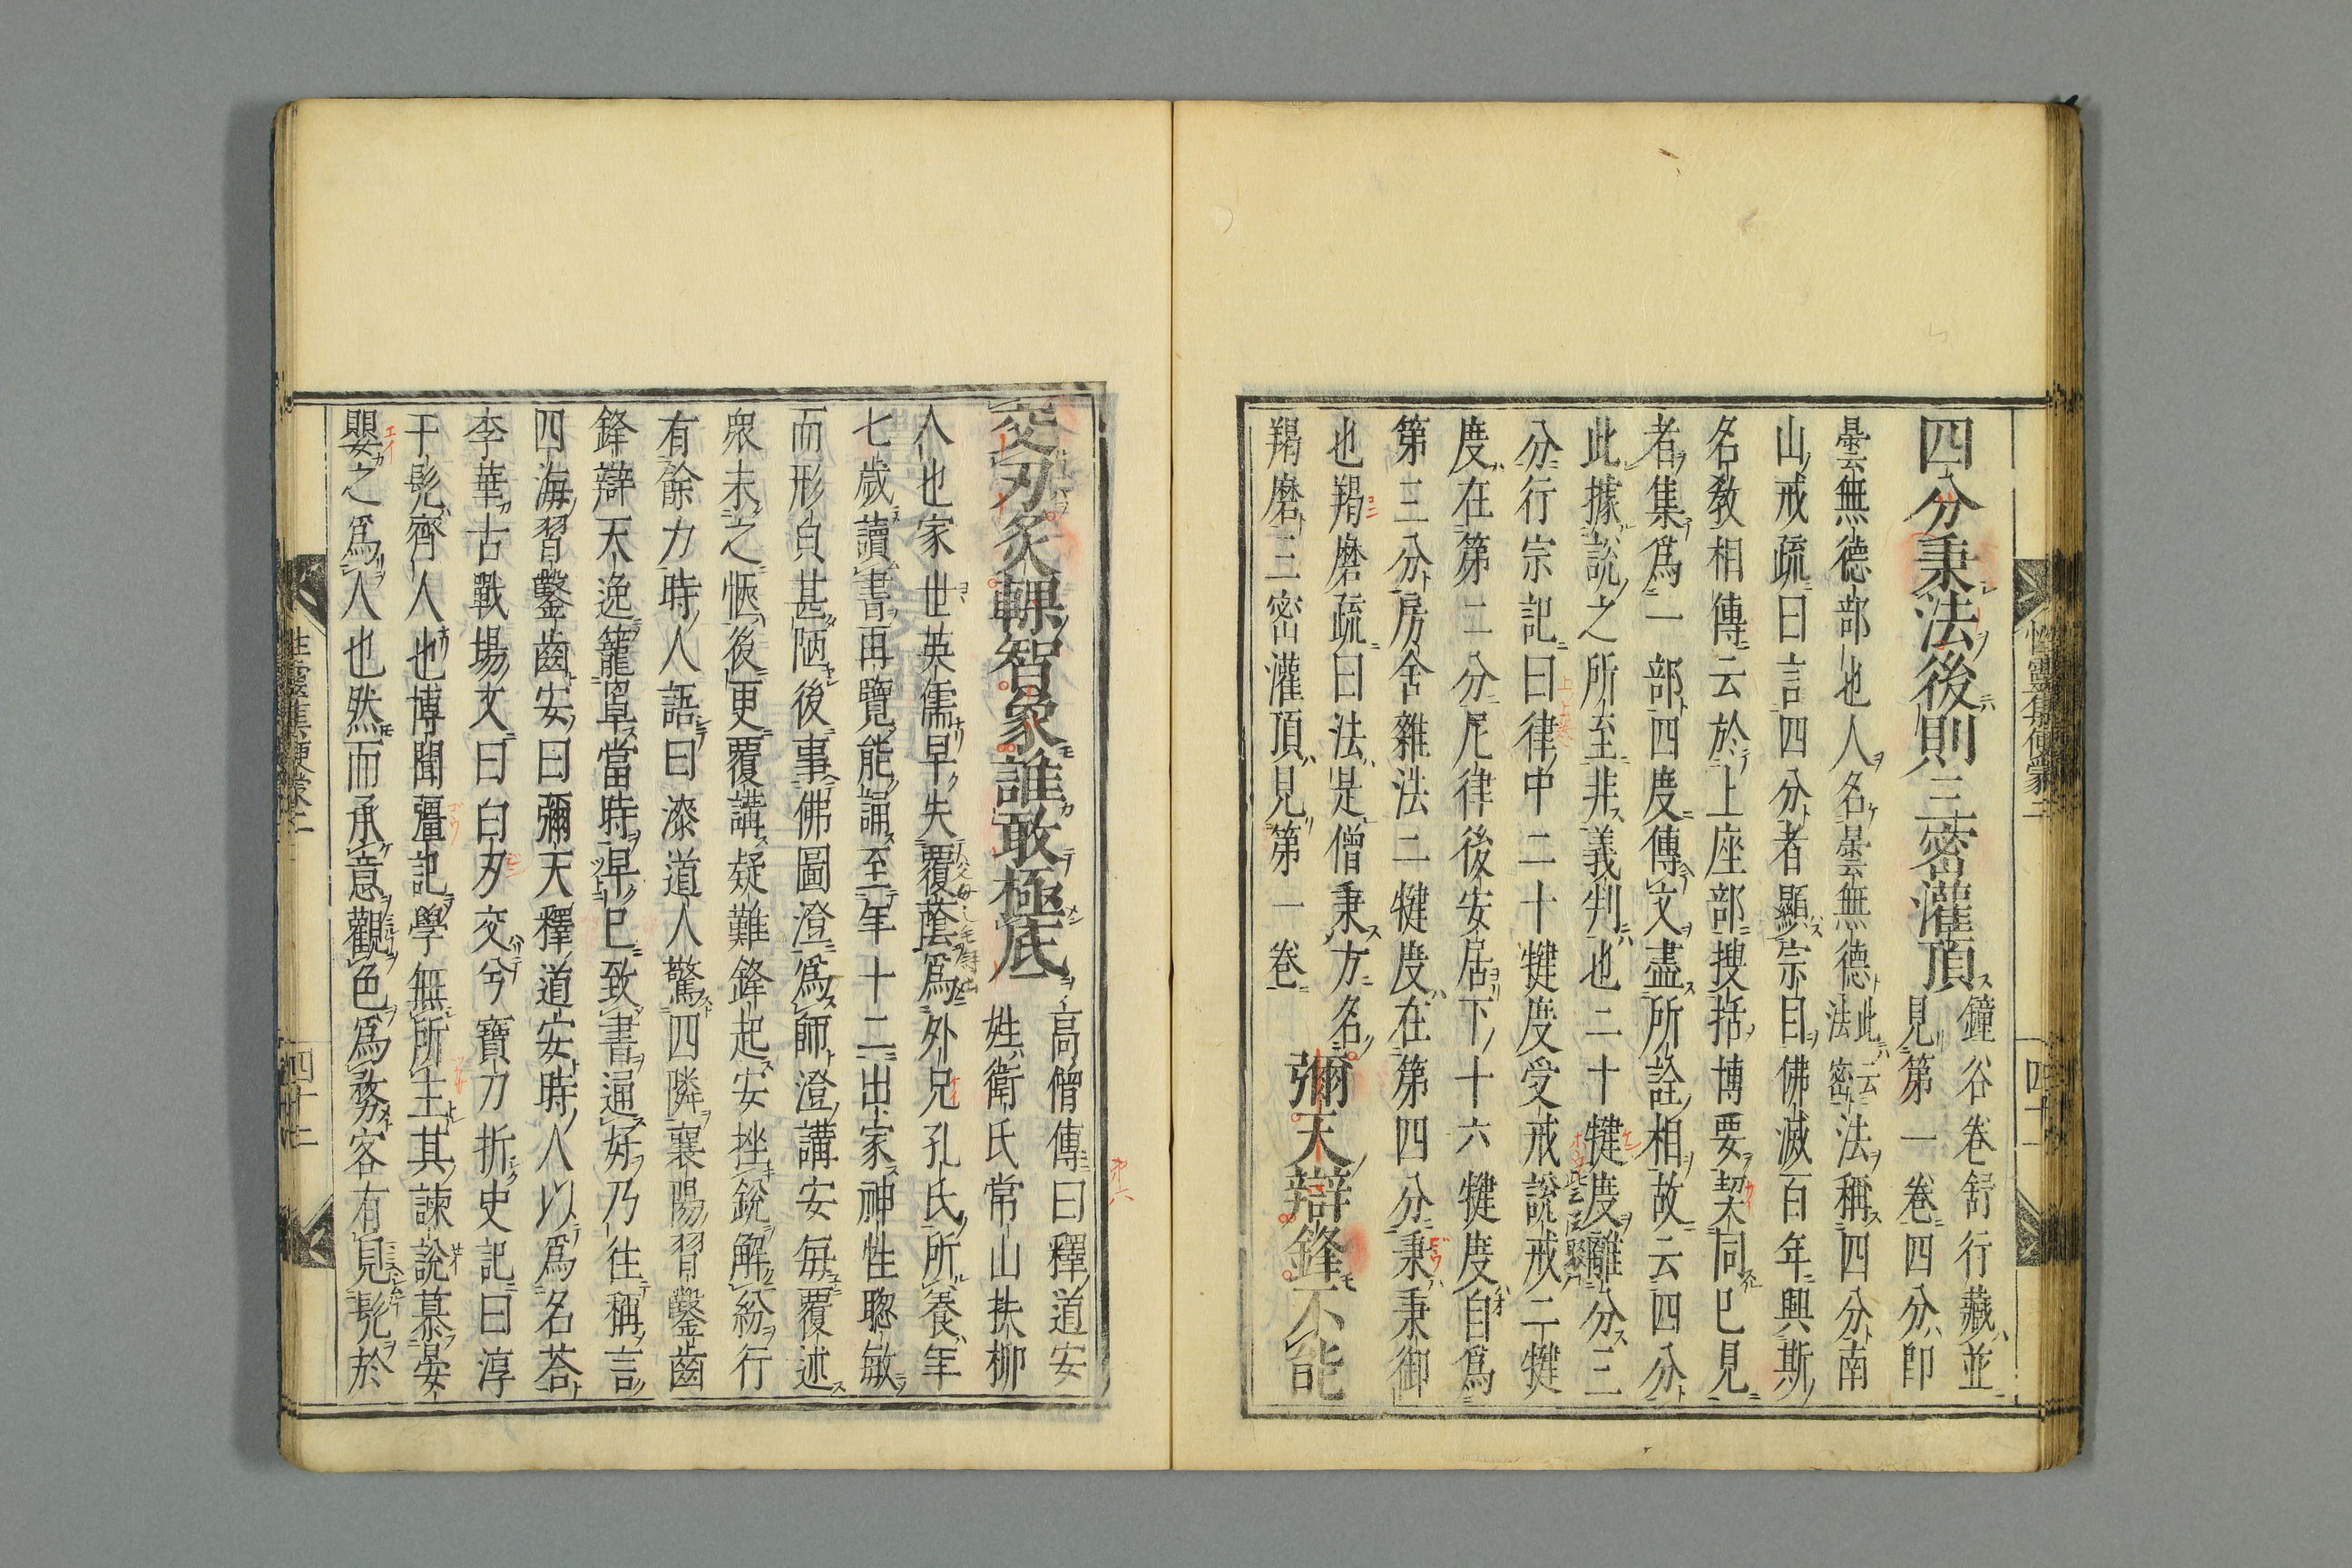 四分秉法後則三密灌頂
鐘谷卷舒行藏並
見第一卷四分卽
曇無德部也人名曇無德此云法密法稱四分南
山戒疏曰言四分者顯宗目佛滅百年興斯
名敎相傳云於上座部搜括博要契同已見
者集爲一部四度傳文盡所詮相故云四分
此據說之所至非義判也二十犍度離分三
分行宗記曰律中二十犍度受戒說戒二犍
度在第二分尼律後安居下十六犍度自爲
第三分房舍雜法二犍度在第四分秉秉御
也羯磨疏曰法是僧秉方名
羯磨三密灌頂見第一卷
彌天辯鋒不能
交刃炙輠智象誰敢極底
高僧傳曰釋道安
姓衛氏常山扶柳
人也家世英儒早失覆蔭爲外兄孔氏所養年
七歲讀書再覽能誦至年十二出家神性聰敏
而形皃甚陋後事佛圖澄爲師澄講安每覆述
衆未之愜後更覆講疑難鋒起安挫銳解紛行
有餘力時人語曰漆道人驚四隣襄陽習鑿齒
鋒辯天逸籠罩當時早已致書通好乃往稱言
四海習鑿齒安曰彌天釋道安時人以爲名荅
李華古戰場文曰白刃交兮寶刀折史記曰淳
于髡齊人也博聞彊記學無所主其諫說慕晏
嬰之爲人也然而承意觀色爲務客有見髡於
性靈集便蒙二
四十一
性靈集便蒙二
四十二